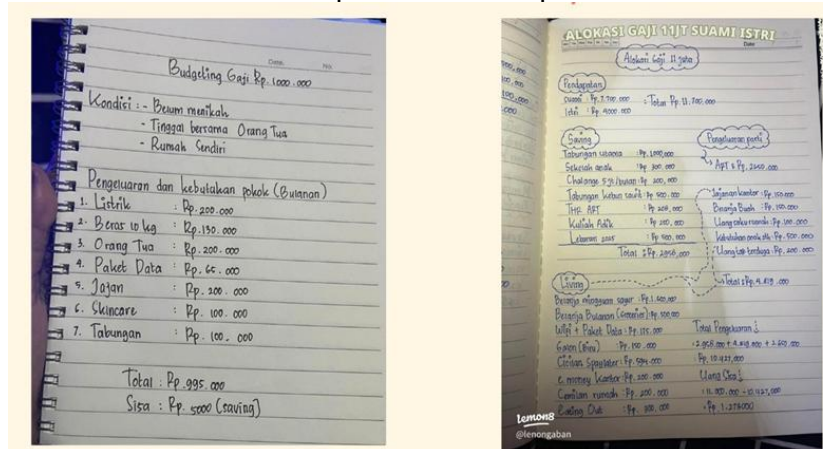 Date. No.
Budgeting Gaji Rp. 1000.000
Kondisi : - Belum menikah
- Tinggal bersama Orang Tua
- Rumah Sendiri
Pengeluaran dan kebutuhan pokok (Bulanan)
1. Listrik : Rp. 200.000
2. Beras 10 kg : Rp. 130.000
3. Orang Tua : Rp. 200.000
4. Paket Data : Rp. 65.000
5. Jajan : Rp. 200.000
6. Skincare : Rp. 100.000
7. Tabungan : Rp. 100.000
Total : Rp. 995.000
Sisa : Rp. 5000 (saving)
ALOKASI GAJI 11JT SUAMI ISTRI
Date
Alokasi Gaji 11 juta
Pendapatan
Suami : Rp. 7.700.000
Istri : Rp. 4000.000
: Total Rp 11.700.000
Saving
Tabungan utama : Rp. 1.000.000
Sekolah anak : Rp 300.000
Challange 5jt/bulan : Rp 200,000
Tabungan kebun sawit : Rp 500.000
THR ART : Rp 200,000
Kuliah Adik : Rp 200,000
Lebaran 2025
Total : Rp.
Pengeluaran pasti
ART : Rp.
Jajanan kantor : Rp. 150.000
Belanja Buah : Rp. 150.000
Uang saku rumah : Rp. 100.000
Kebutuhan anak dll : Rp. 500.000
Uang tak terduga : Rp. 200.000
Total : Rp. 4.819.000
Living
Belanja mingguan sayur : Rp. 1.500.000
Belanja Bulanan : Rp. 500.000
Wifi + Paket Data : Rp. 175.000
Galon : Rp. 150.000
Cicilan Spaylater : Rp. 594.000
e money Kantor : Rp. 200.000
Cemilan rumah : Rp. 200,000
Eating Out : Rp. 300.000
Total Pengeluaran
: Rp. 10.427,000
Uang Sisa
: Rp 1.273.000
lemon8
@lenongaban